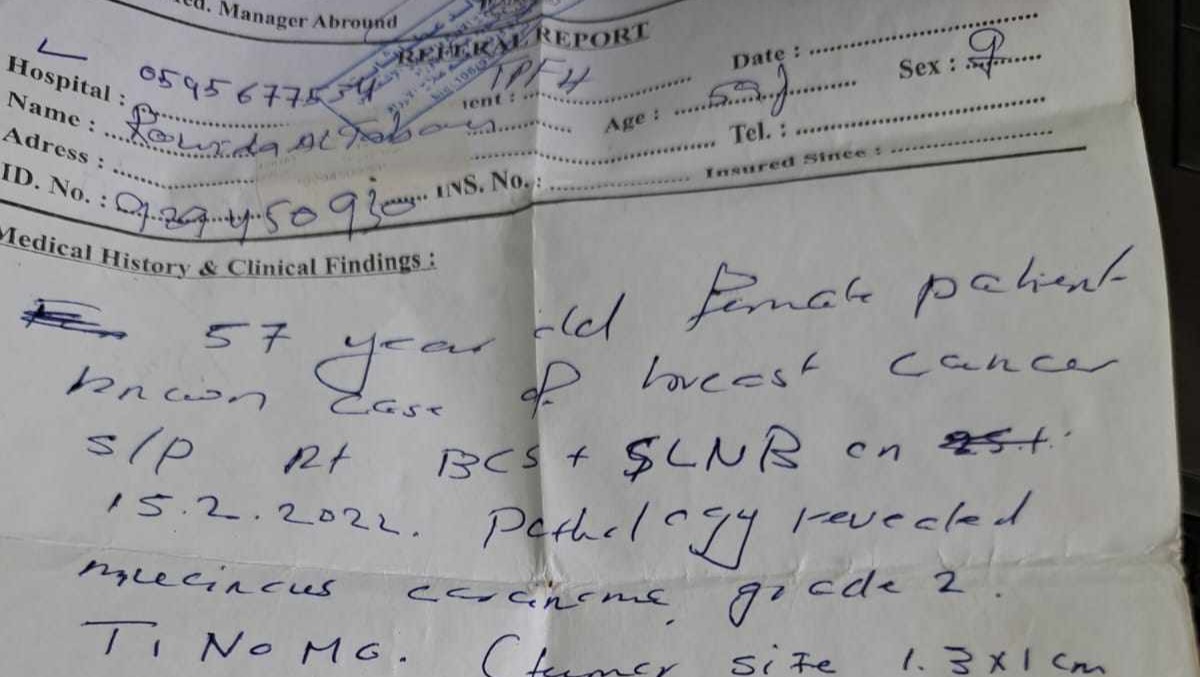 ed. Manager Abround
REFERAL REPORT
Hospital : 0595677554 ient : TPFH Date :
Name : Age : Sex : ♀
Adress : Tel. :
ID. No. : INS. No. : Insured Since :
Medical History & Clinical Findings :
57 year old female patient
known case of breast cancer
s/p Rt BCS + SLNB on
15.2.2022. Pathology revealed
mucinous carcinoma grade 2.
T1 N0 M0. (tumor size 1.3x1 cm